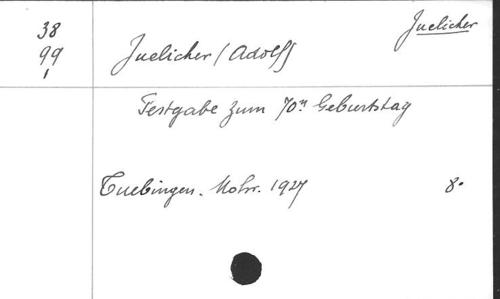 Juelicher
38
99
1
Juelicher (Adolf)
Festgabe zum 70n Geburtstag
Tuebingen. Mohr. 1927 8°